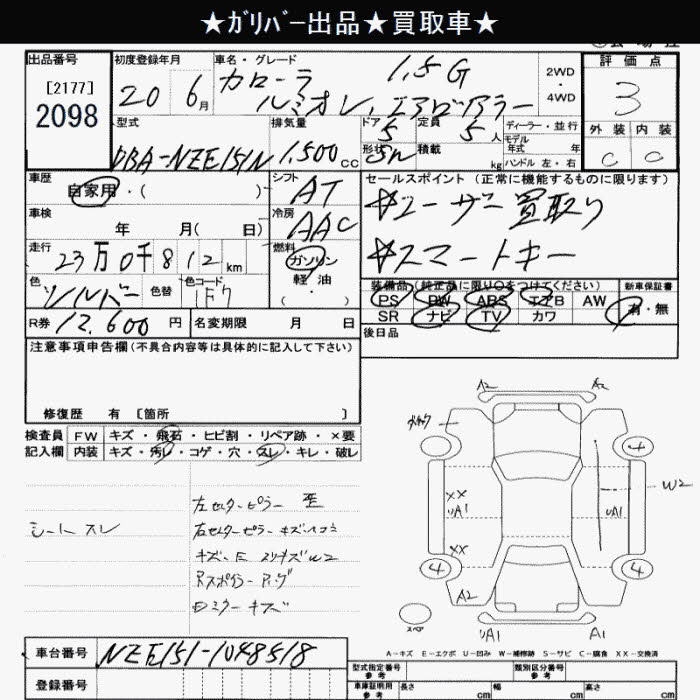 ★ｶﾞﾘﾊﾞｰ出品★買取車★
出品番号 初度登録年月 車名・グレード 評価点
[2177]
2098
20 6月 カローラ 1.5G 2WD・4WD 3
ルミオン エアロツアラー
型式 排気量 ドア 5 定員 5人 ディーラー・並行 外装 内装
DBA-NZE151N 1,500cc 形状 5W 積載 kg モデル年式 年 C C
ハンドル 左・右
車歴 シフト セールスポイント (正常に機能するものに限ります)
自家用・( ) AT ☆ユーザー買取り
車検 冷房
年 月( 日) AAC ☆スマートキー
走行 燃料
23万0千812km ガソリン
軽油
・( )
色 シルバー 色替 色コード 1F7
装備品 (純正品に限り〇をつけてください) 新車保証書
PS PW ABS エアB AW 有・無
SR ナビ TV カワ
R券 12,600円 名変期限 月 日 後日品
注意事項申告欄 (不具合内容等は具体的に記入して下さい)
修復歴 有 [箇所 ]
検査員 FW キズ・飛石・ヒビ割・リペア跡・×要
記入欄 内装 キズ・汚レ・コゲ・穴・スレ・キレ・破レ
左センターピラー 歪
シート スレ 右センターピラー キズヘコミ
キズ・E スリキズW2
Rスポイラー
ミラー キズ
A2 A2
4
W2
XX
UA1 UA1
XX
4 4
A2
スペア
UA1 A1
A-キズ E-エクボ U-凹み W-補修跡 S-サビ C-腐食 XX-交換済
車台番号 NZE151-1048518
登録番号
型式指定番号 参考 類別区分番号 参考
車庫証明用 参考 長さ cm 幅 cm 高さ cm